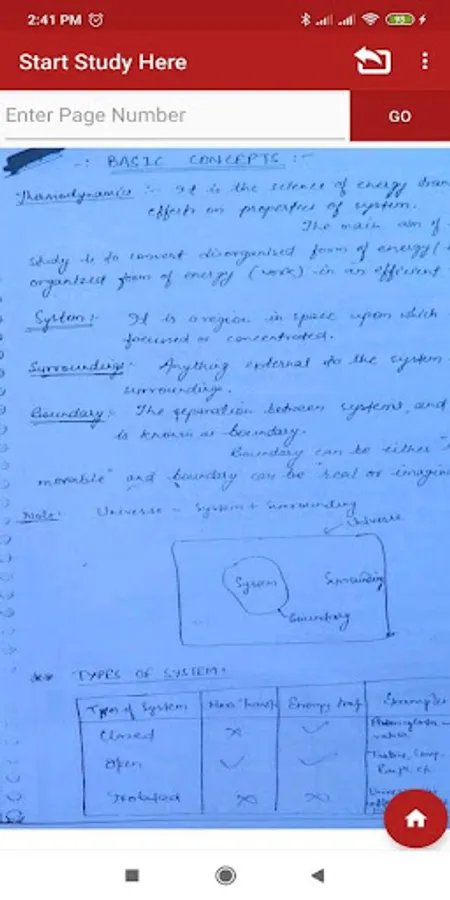 2:41 PM
93
Start Study Here
Enter Page Number
GO
-: BASIC CONCEPTS :-
Thermodynamics :- It is the science of energy tran
effects on properties of system.
The main aim of
study is to convert disorganised form of energy (
organised form of energy (work) in an efficient
System:- It is a region in space upon which
focussed or concentrated.
Surroundings:- Anything external to the system
surroundings.
Boundary:- The separation between systems and
is known as boundary.
Boundary can be either
movable" and boundary can be "real or imagin
Note: Universe = System + Surrounding
Universe
System
Surrounding
Boundary
** TYPES OF SYSTEM:
Types of System Mass transf Energy transf Example
Closed × ✓
Open ✓ ✓ Turbine, Comp.
Isolated × × Universe